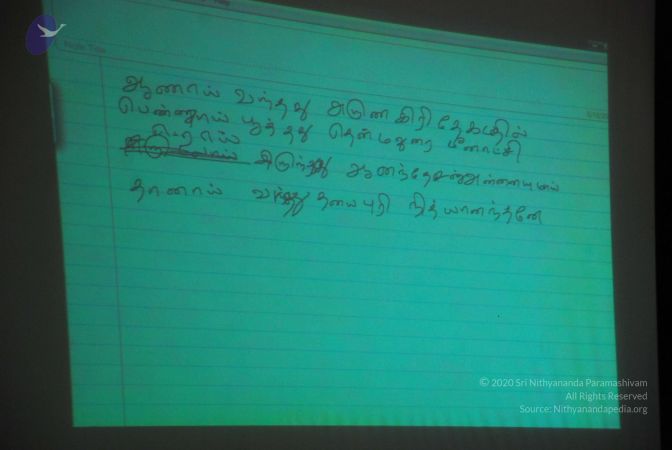 Note Title
ஆணாய் வந்தது அருணகிரி தேகத்தில்
பெண்ணாய் பூத்தது தென்மதுரை மீனாட்சி
இருந்தது
தானாய் வந்து தயைபுரி நித்யானந்தனே
© 2020 Sri Nithyananda Paramashivam
All Rights Reserved
Source: Nithyanandapedia.org